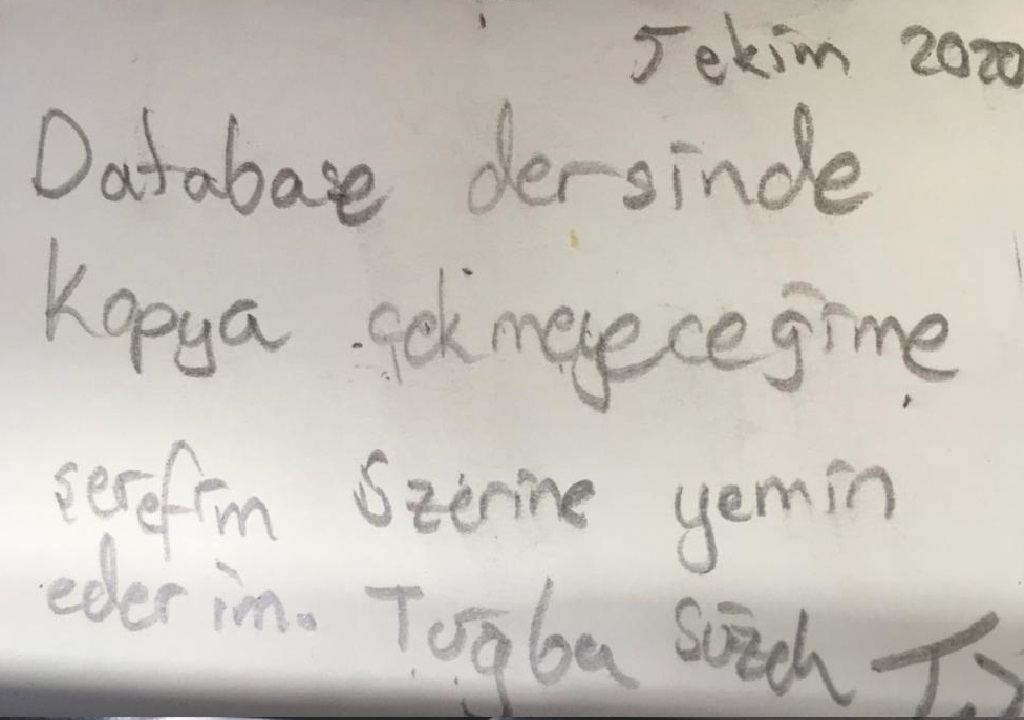 5 ekim 2020
Database dersinde
Kopya çekmeyeceğime
şerefim üzerine yemin
ederim. Tuğba